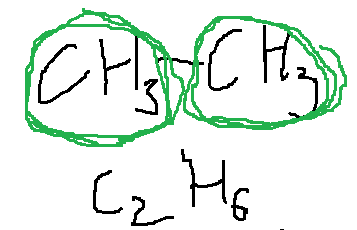 CH₃-CH₃
C₂H₆